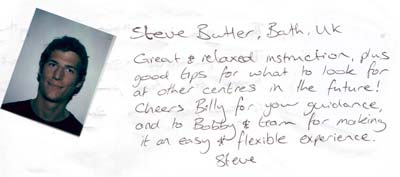 Steve Butler, Bath, UK
Great & relaxed instruction, plus
good tips for what to look for
at other centres in the future!
Cheers Billy for your guidance,
and to Bobby & team for making
it an easy & flexible experience.
Steve